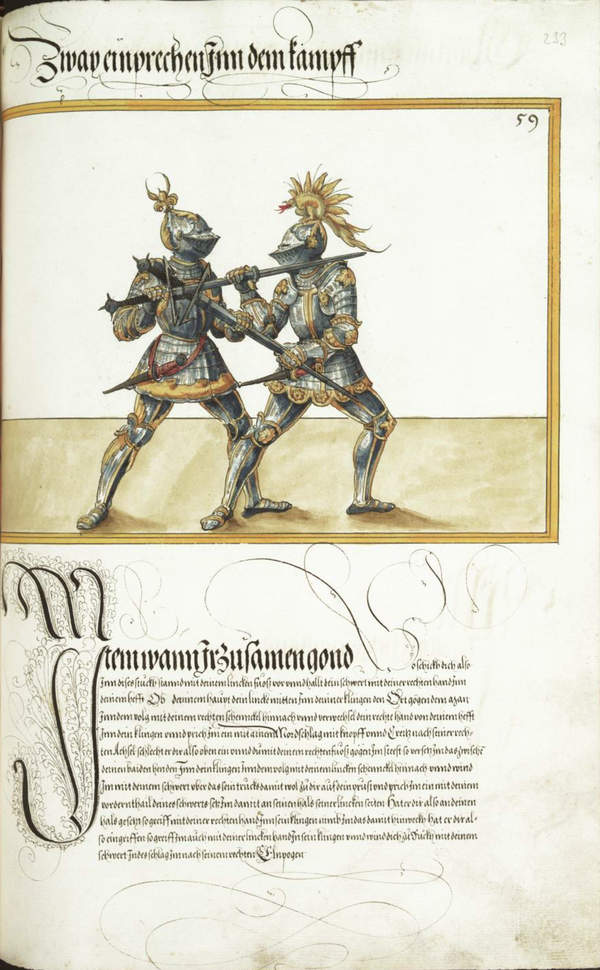 233
Zway einprechen Inn dem kampff
59
Item wann Ir zusamen gond so schick dich also
Inn dises stuckh stannd mit deinem lincken fuoss vor vnnd hallt dein schwert mit deiner rechten hannd Inn
deinem hefft Ob deinem haupt dein lincke mitten Inn deiner klingen den Ort gögen dem man
Inn dem volg mit deinem rechten schennckel hinnach vnnd verwechsel dein recht hand von deinem hefft
Inn dein klingen vnnd prich Im ein mit ainem Mordschlag mit knopff vnnd Creitz nach seiner rech-
ten Achsel schlecht er dir also oben ein vnnd du mit deinem rechten fuoß gögen Im steest so versetz Im das zwischen
deinen baiden henden Inn dein klingen Inn dem volg mit deinem lincken schennckel hinnach vnnd wind
Im mit deinem schwert vber das sein truck damit wol zu dir auf dein prust vnnd prich Im ein mit deinem
vordern thail deines schwerts setz Im damit an seinen hals seiner lincken seiten Hat er dir also an deinen
hals gesetzt so greiff mit deiner rechten hand Inn sein klingen nimb Im das damit hinweckh hat er dir al-
so eingriffen so greiff Im auch mit deiner lincken hand In sein klingen vnnd wind dich zu Im mit deinem
schwert Indes schlag Im nach seinem rechten Elnpogen